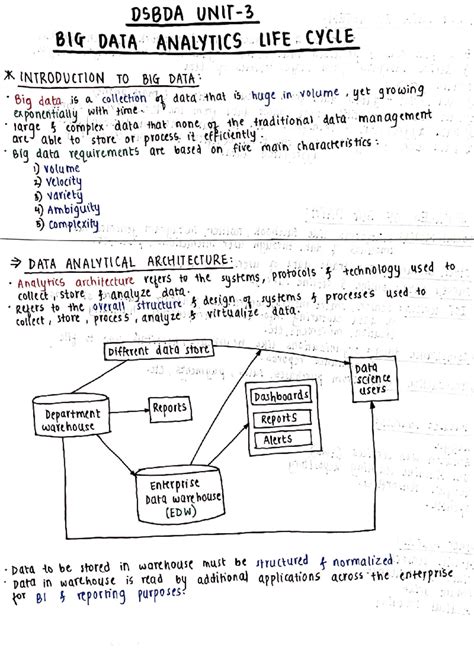 DSBDA UNIT-3
BIG DATA ANALYTICS LIFE CYCLE
* INTRODUCTION TO BIG DATA:
· Big data is a collection of data that is huge in volume, yet growing
exponentially with time.
· large & complex data that none of the traditional data management
are able to store or process it efficiently.
· Big data requirements are based on five main characteristics:
1) Volume
2) Velocity
3) Variety
4) Ambiguity
5) Complexity
→ DATA ANALYTICAL ARCHITECTURE:
· Analytics architecture refers to the systems, protocols & technology used to
collect, store & analyze data.
· refers to the overall structure & design of systems & processe's used to
collect, store, process, analyze & virtualize data.
Different data store
Data
science
users
Department
warehouse
Reports
Dashboards
Reports
Alerts
Enterprise
Data warehouse
(EDW)
· Data to be stored in warehouse must be structured & normalized.
· Data in warehouse is read by additional applications across the enterprise
for BI & reporting purposes.